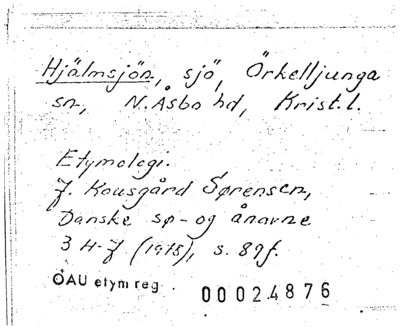 Hjälmsjön, sjö, Örkelljunga
sn, N. Åsbo hd, Krist. l.
Etymologi.
J. Kousgård Sørensen,
Danske sø- og ånavne
3 H-J (1978), s. 89f.
ÖAU etym reg.
00024876